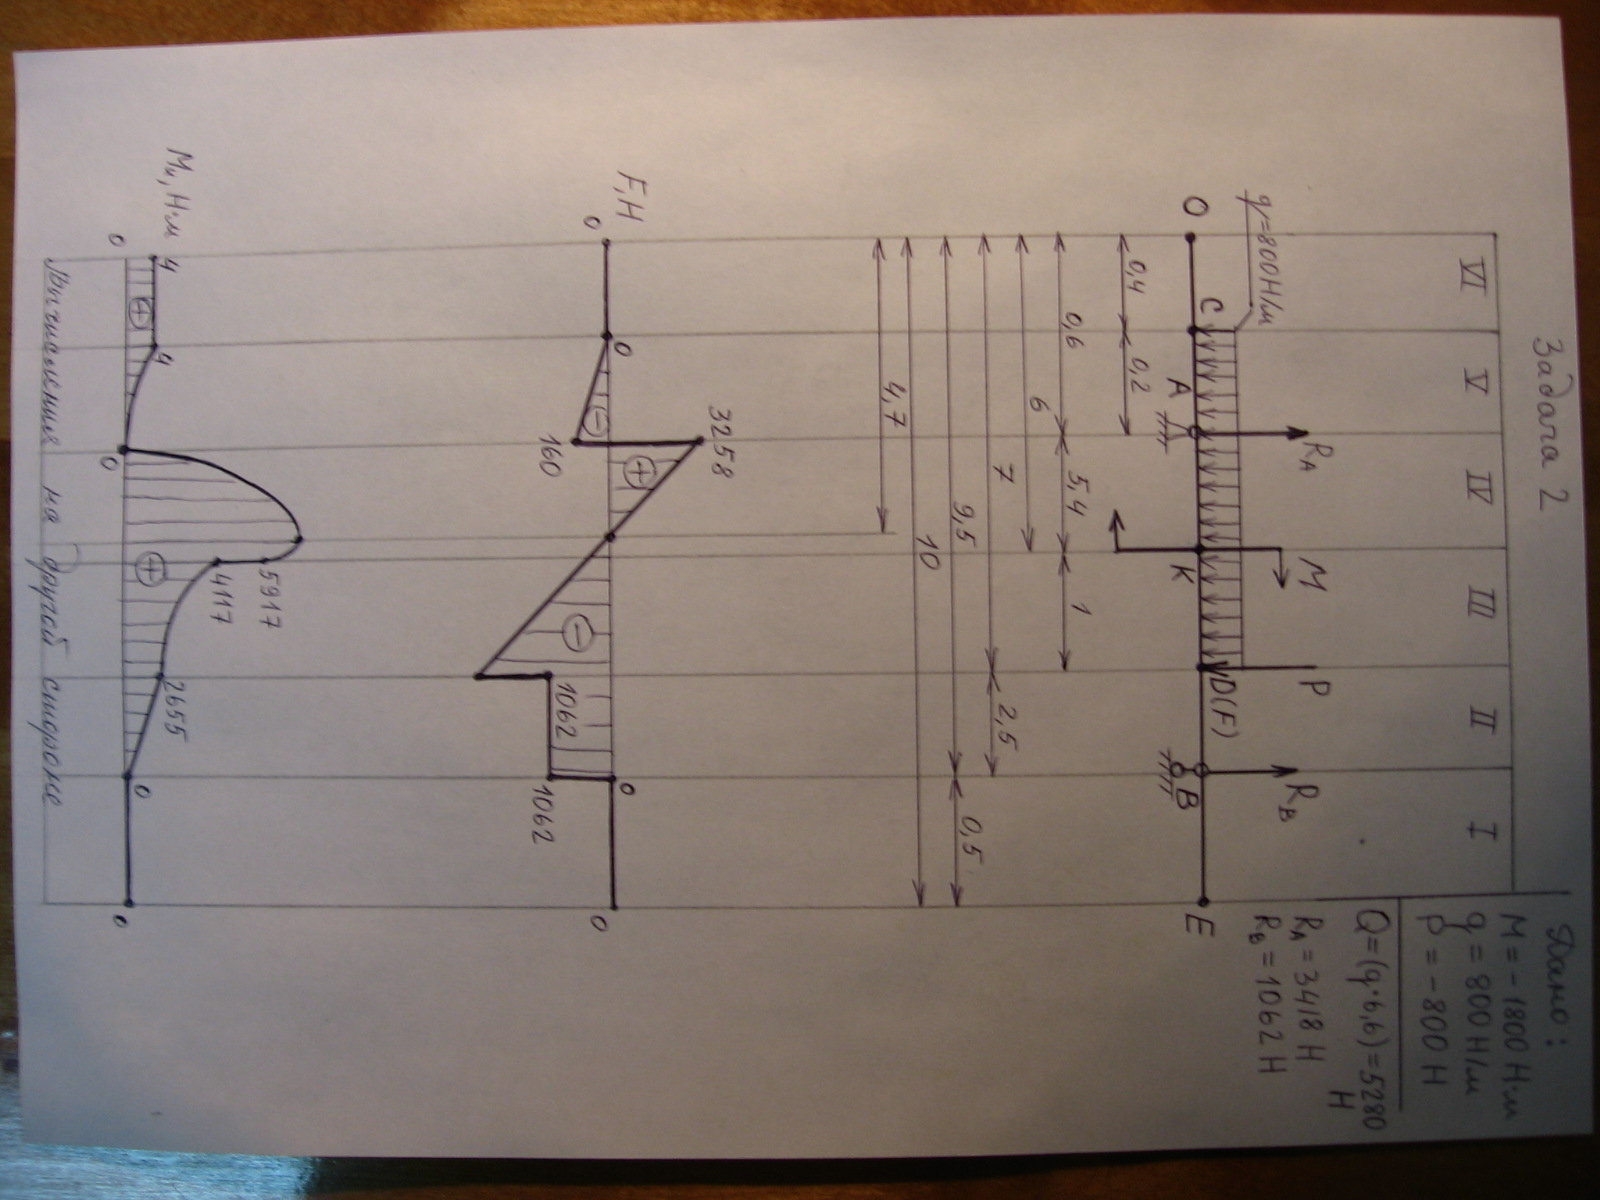 Задача 2
Дано:
M = -1800 Н·м
q = 800 Н/м
P = -800 Н
Q = (q·6,6) = 5280 Н
R_A = 3418 Н
R_B = 1062 Н
VI V IV III II I
q=800Н/м
R_A M P R_B
O C A K D(F) B E
0,4 0,2
0,6 5,4 1
6
7 2,5
9,5 0,5
10
4,7
F,Н
0 0 160 3258 1062 1062 0 0
⊖ ⊕ ⊖
Mи, Н·м
0 4 4 0 5917 4117 2655 0 0
⊕ ⊕
Вычисления на другой стороне